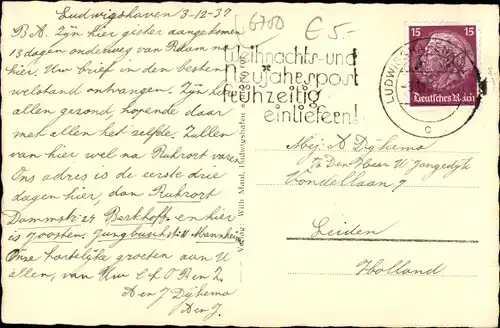 Ludwigshaven 3-12-37
B A. Zijn hier gister aangekomen
13 dagen onderweg van Rdam na
hier. Uw brief in den besten
welstand ontvangen. Zijn hier
allen gezond, hopende daar
met allen het zelfde. Zullen
van hier wel na Ruhrort varen.
Ons adres is de eerste drie
dagen hier, dan Ruhrort
Dammstr 24 Berkhoff. en hier
is Joosten. Jungbuschstr. 11 Mannheim
Onze hartelijke groeten aan U
allen, van Uw
A en J Dijkema
A en J.
6700
€ 5.-
Weihnachts- und
Neujahrspost
frühzeitig
einliefern!
LUDWIGSHAFEN
c
15 15
Deutsches Reich
Verlag: Willi Maul, Ludwigshafen a. Rh.
Mej. A Dijkema
p/a Den Heer W Jongedijk
Vondellaan 7
Leiden
Holland